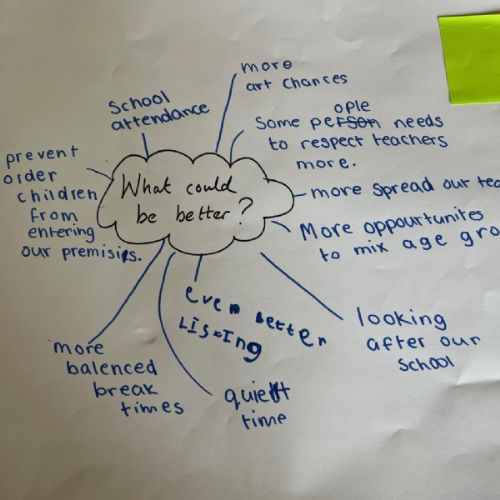 What could
be better?
more
art chances
Some people needs
to respect teachers
more.
more spread out
More oppourtunites
to mix age
looking
after our
school
even better
Listing
quieht
time
more
balenced
break
times
prevent
order
children
from
entering
our premisis.
School
attendance